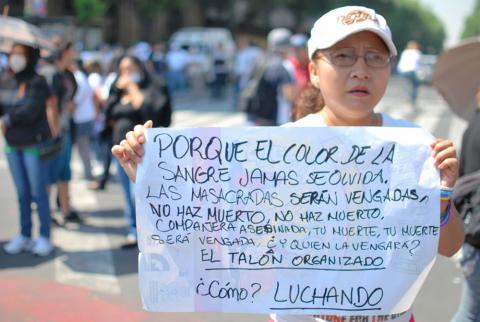 PORQUE EL COLOR DE LA
SANGRE JAMAS SE OLVIDA,
LAS MASACRADAS SERÁN VENGADAS,
NO HAZ MUERTO, NO HAZ MUERTO,
COMPAÑERA ASESINADA, TU MUERTE, TU MUERTE
SERÁ VENGADA, ¿Y QUIEN LA VENGARÁ?
EL TALÓN ORGANIZADO
¿CÓMO? LUCHANDO